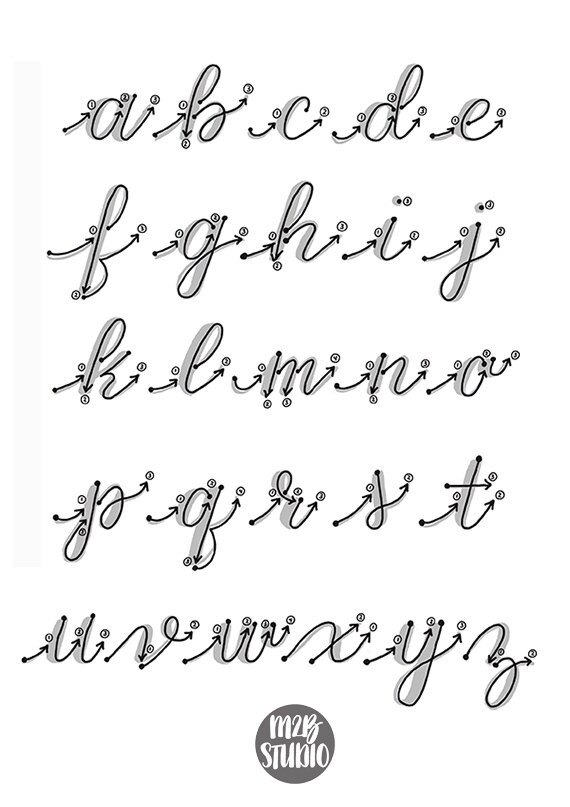 a b c d e
f g h i j
k l m n o
p q r s t
u v w x y z
M2B
STUDIO